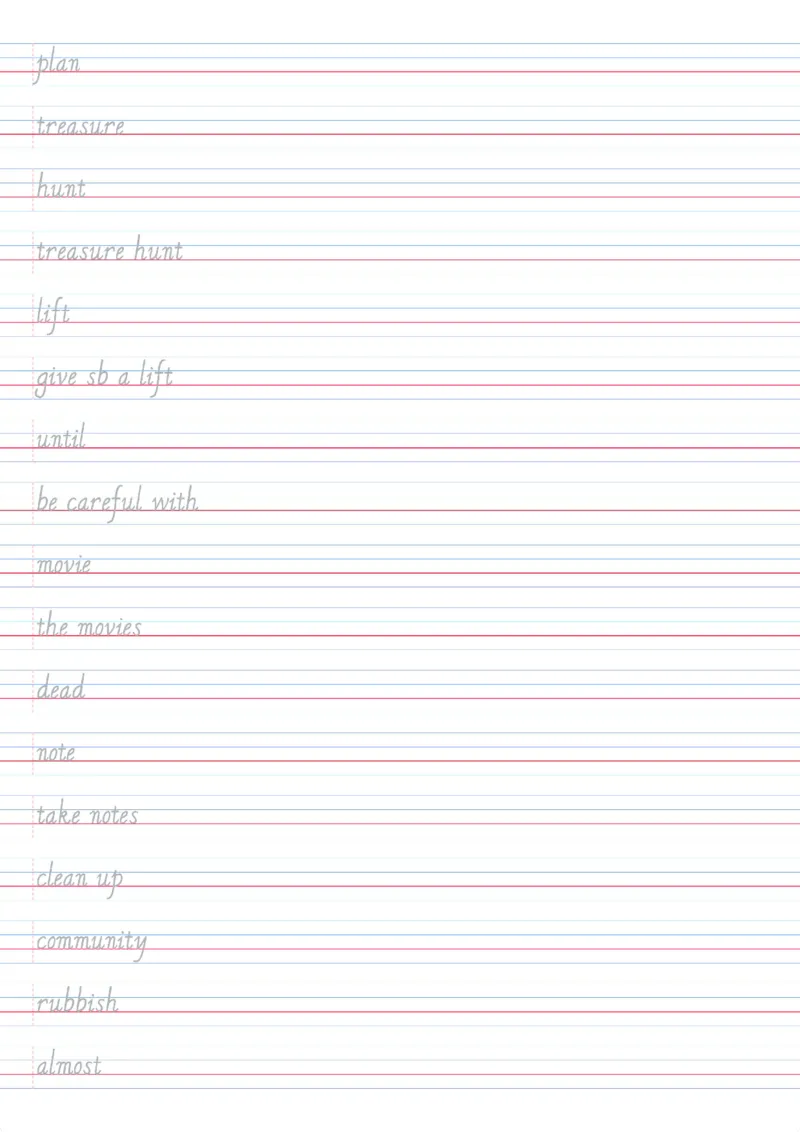 plan
treasure
hunt
treasure hunt
lift
give sb a lift
until
be careful with
movie
the movies
dead
note
take notes
clean up
community
rubbish
almost